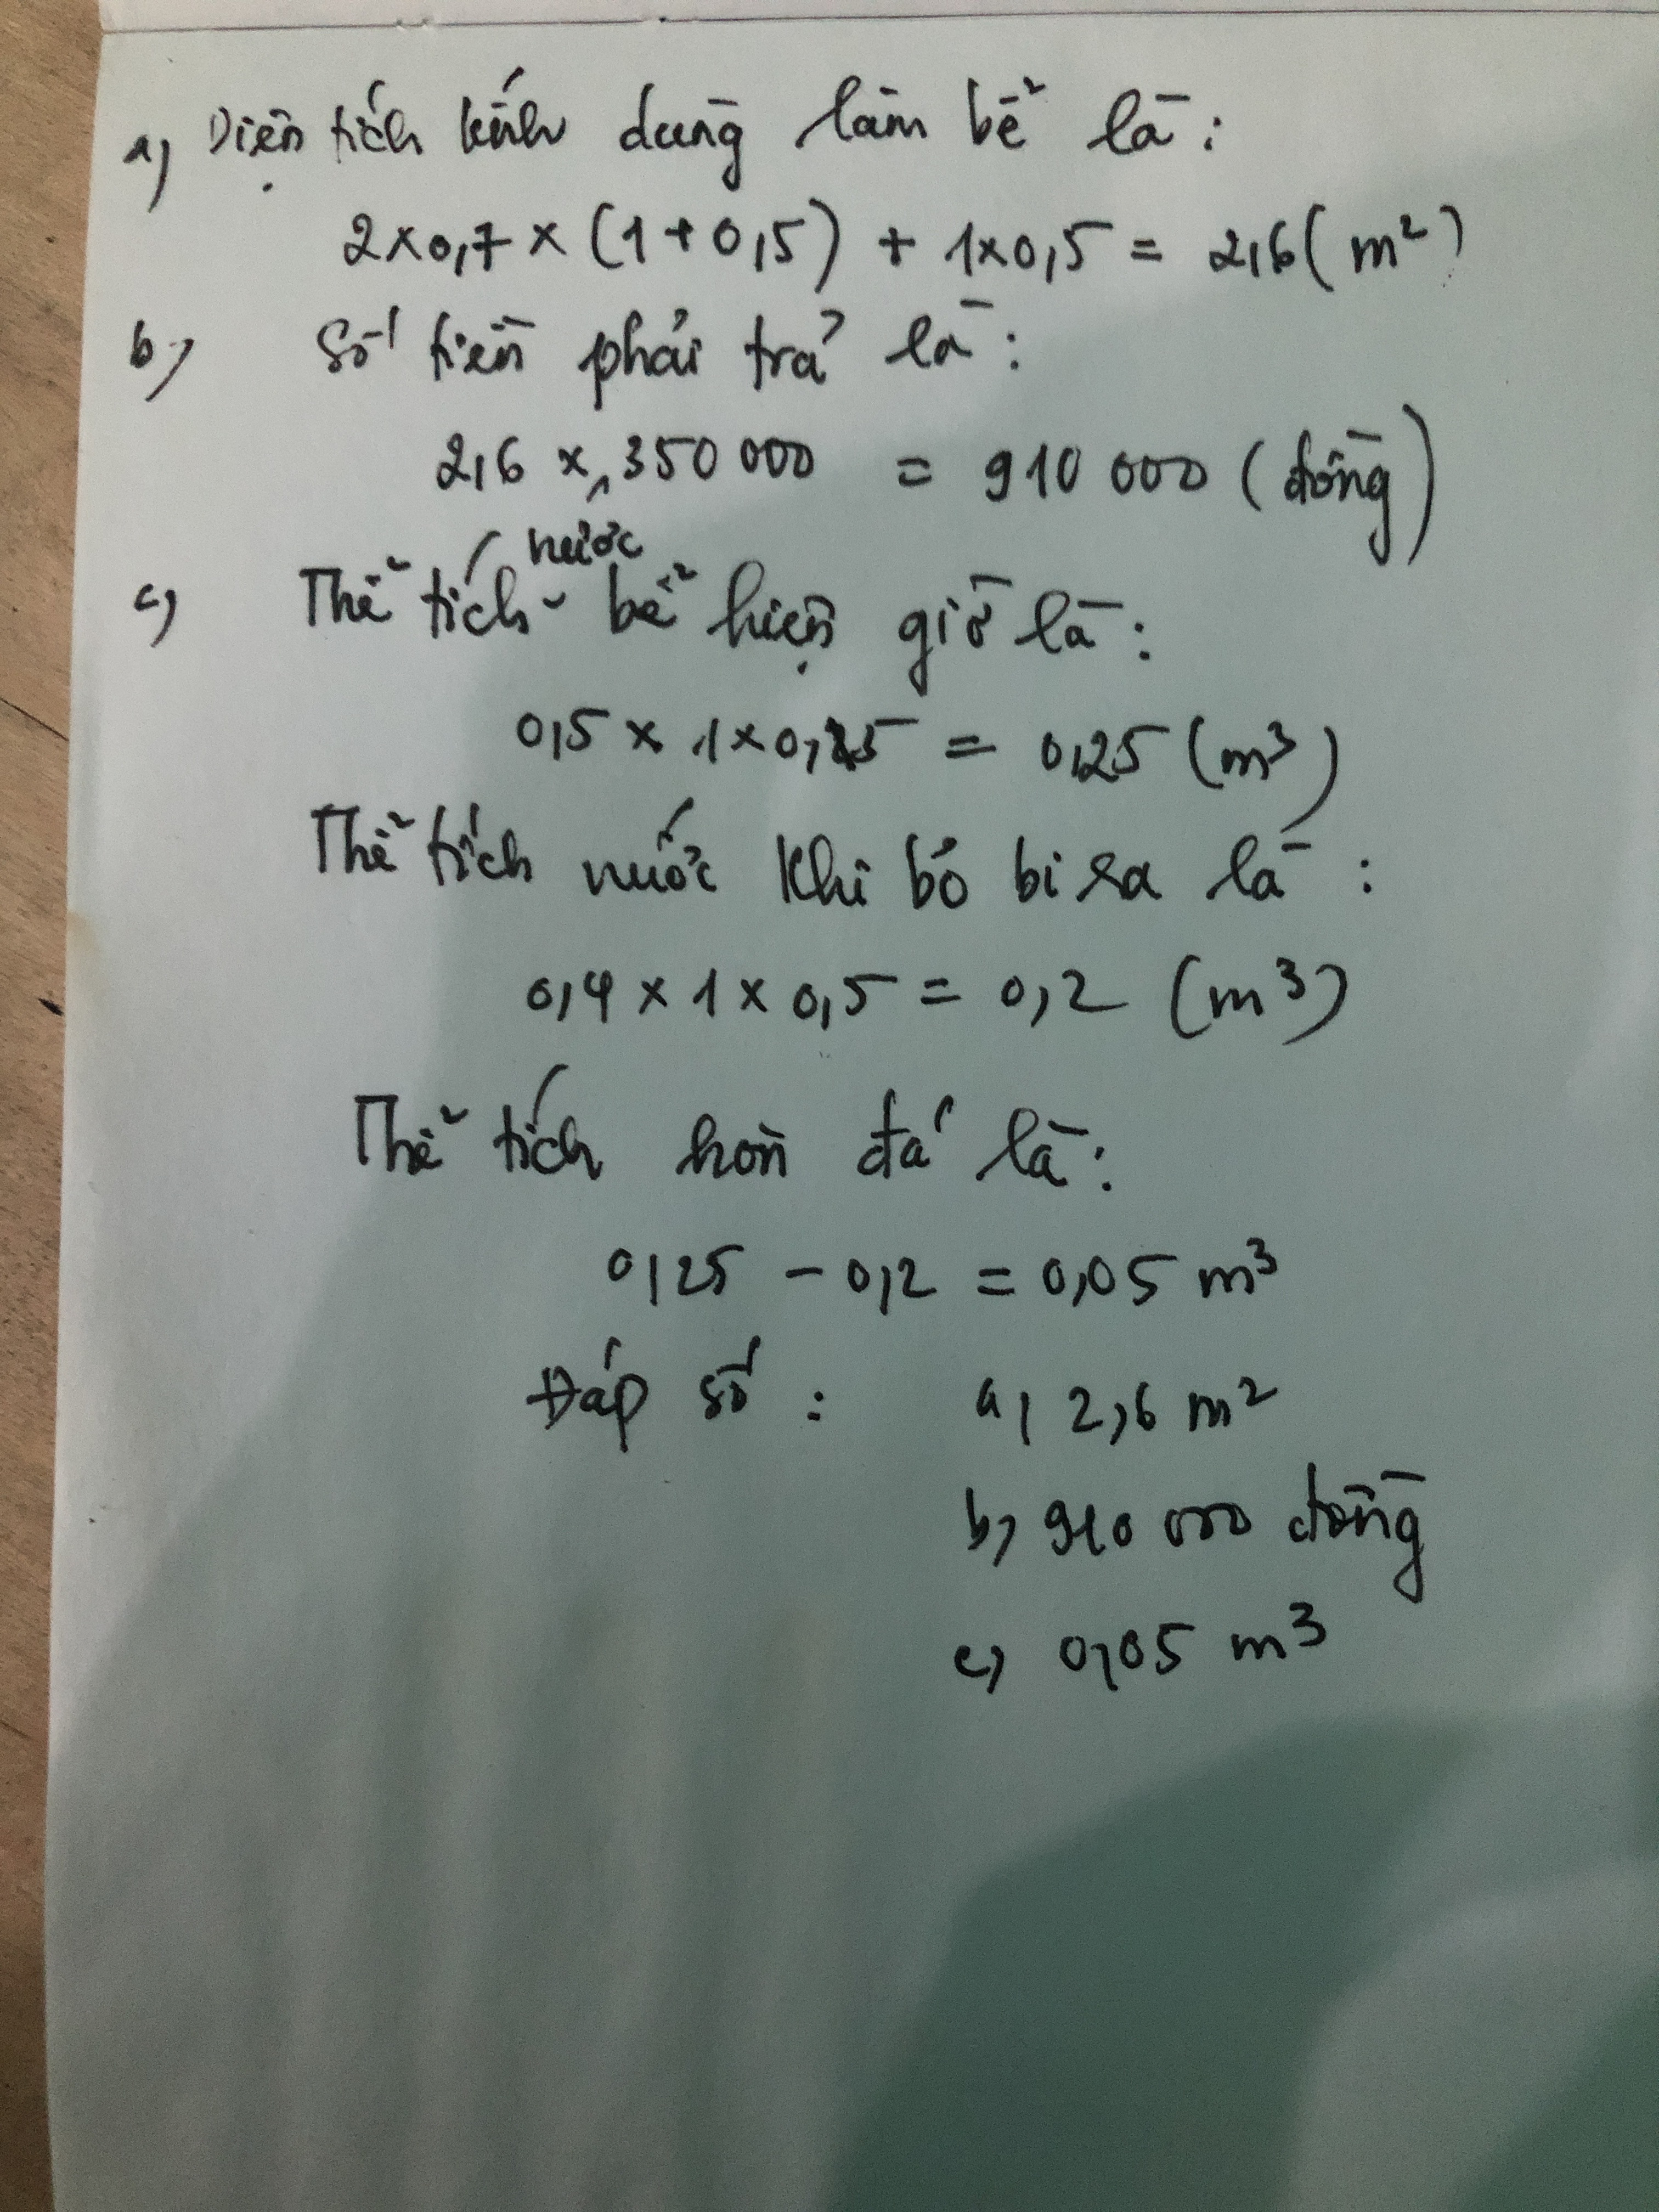 a) Diện tích kính dùng làm bể là:
2 x 0,7 x (1 + 0,5) + 1 x 0,5 = 2,6 (m²)
b) Số tiền phải trả là:
2,6 x 350 000 = 910 000 (đồng)
c) Thể tích nước bể hiện giờ là:
0,5 x 1 x 0,5 = 0,25 (m³)
Thể tích nước khi bỏ bi ra là:
0,4 x 1 x 0,5 = 0,2 (m³)
Thể tích hòn đá là:
0,25 - 0,2 = 0,05 m³
Đáp số: a) 2,6 m²
b) 910 000 đồng
c) 0,05 m³